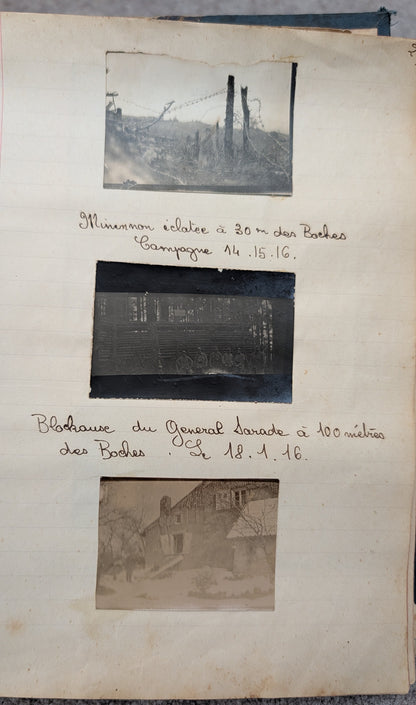 Minennon éclatée à 30 m des Boches
Campagne 14.15.16.
Blockause du General Sarade à 100 mètres
des Boches. Le 18.1.16.